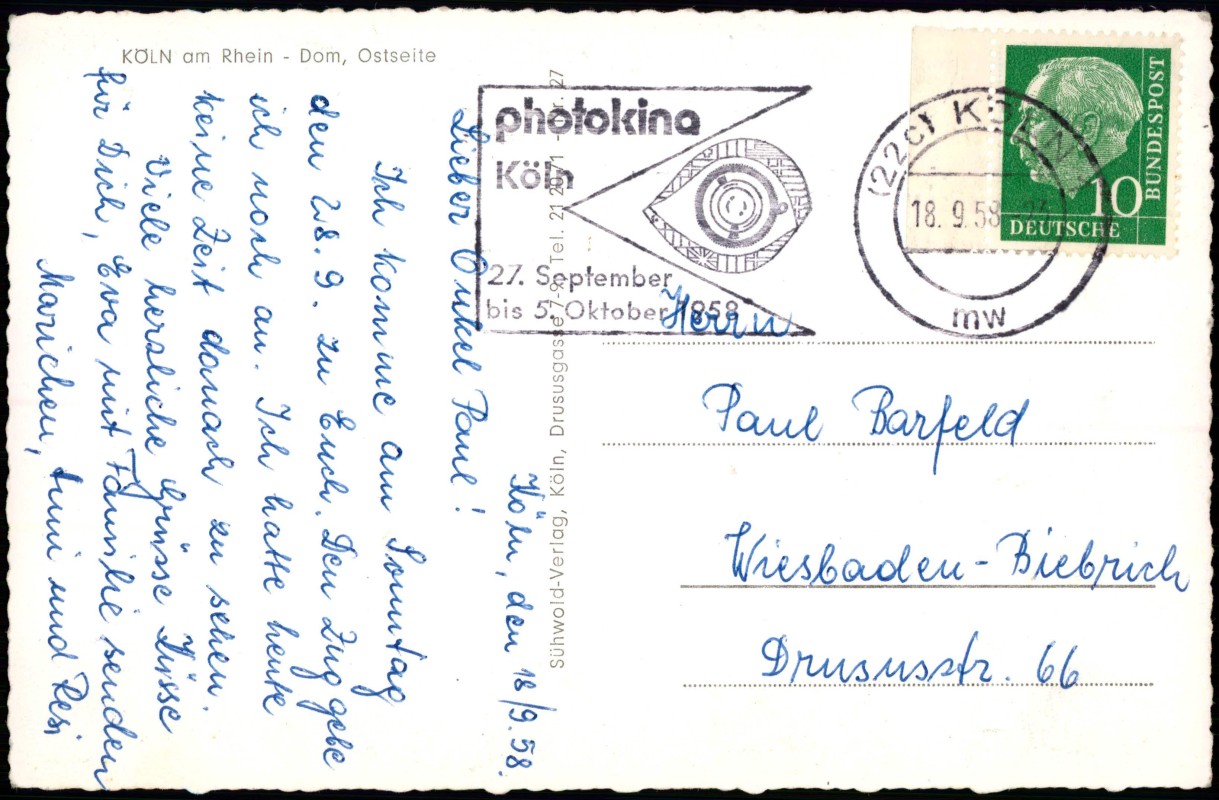 KÖLN am Rhein - Dom, Ostseite
Köln, den 18/9.58.
Lieber Onkel Paul!
Ich komme am Sonntag
den 28.9. zu Euch. Den Zug gebe
ich noch an. Ich hatte heute
keine Zeit danach zu sehen.
Viele herzliche Grüsse Küsse
für Dich, Eva mit Familie senden
Marichen, und Resi
Sühwold-Verlag, Köln, Drususgasse 7-9, Tel. 21
photokina
Köln
27. September
bis 5. Oktober 1958
(22c) KÖLN
18. 9. 58
mw
BUNDESPOST
10
DEUTSCHE
Herrn
Paul Barfeld
Wiesbaden-Biebrich
Drususstr. 66